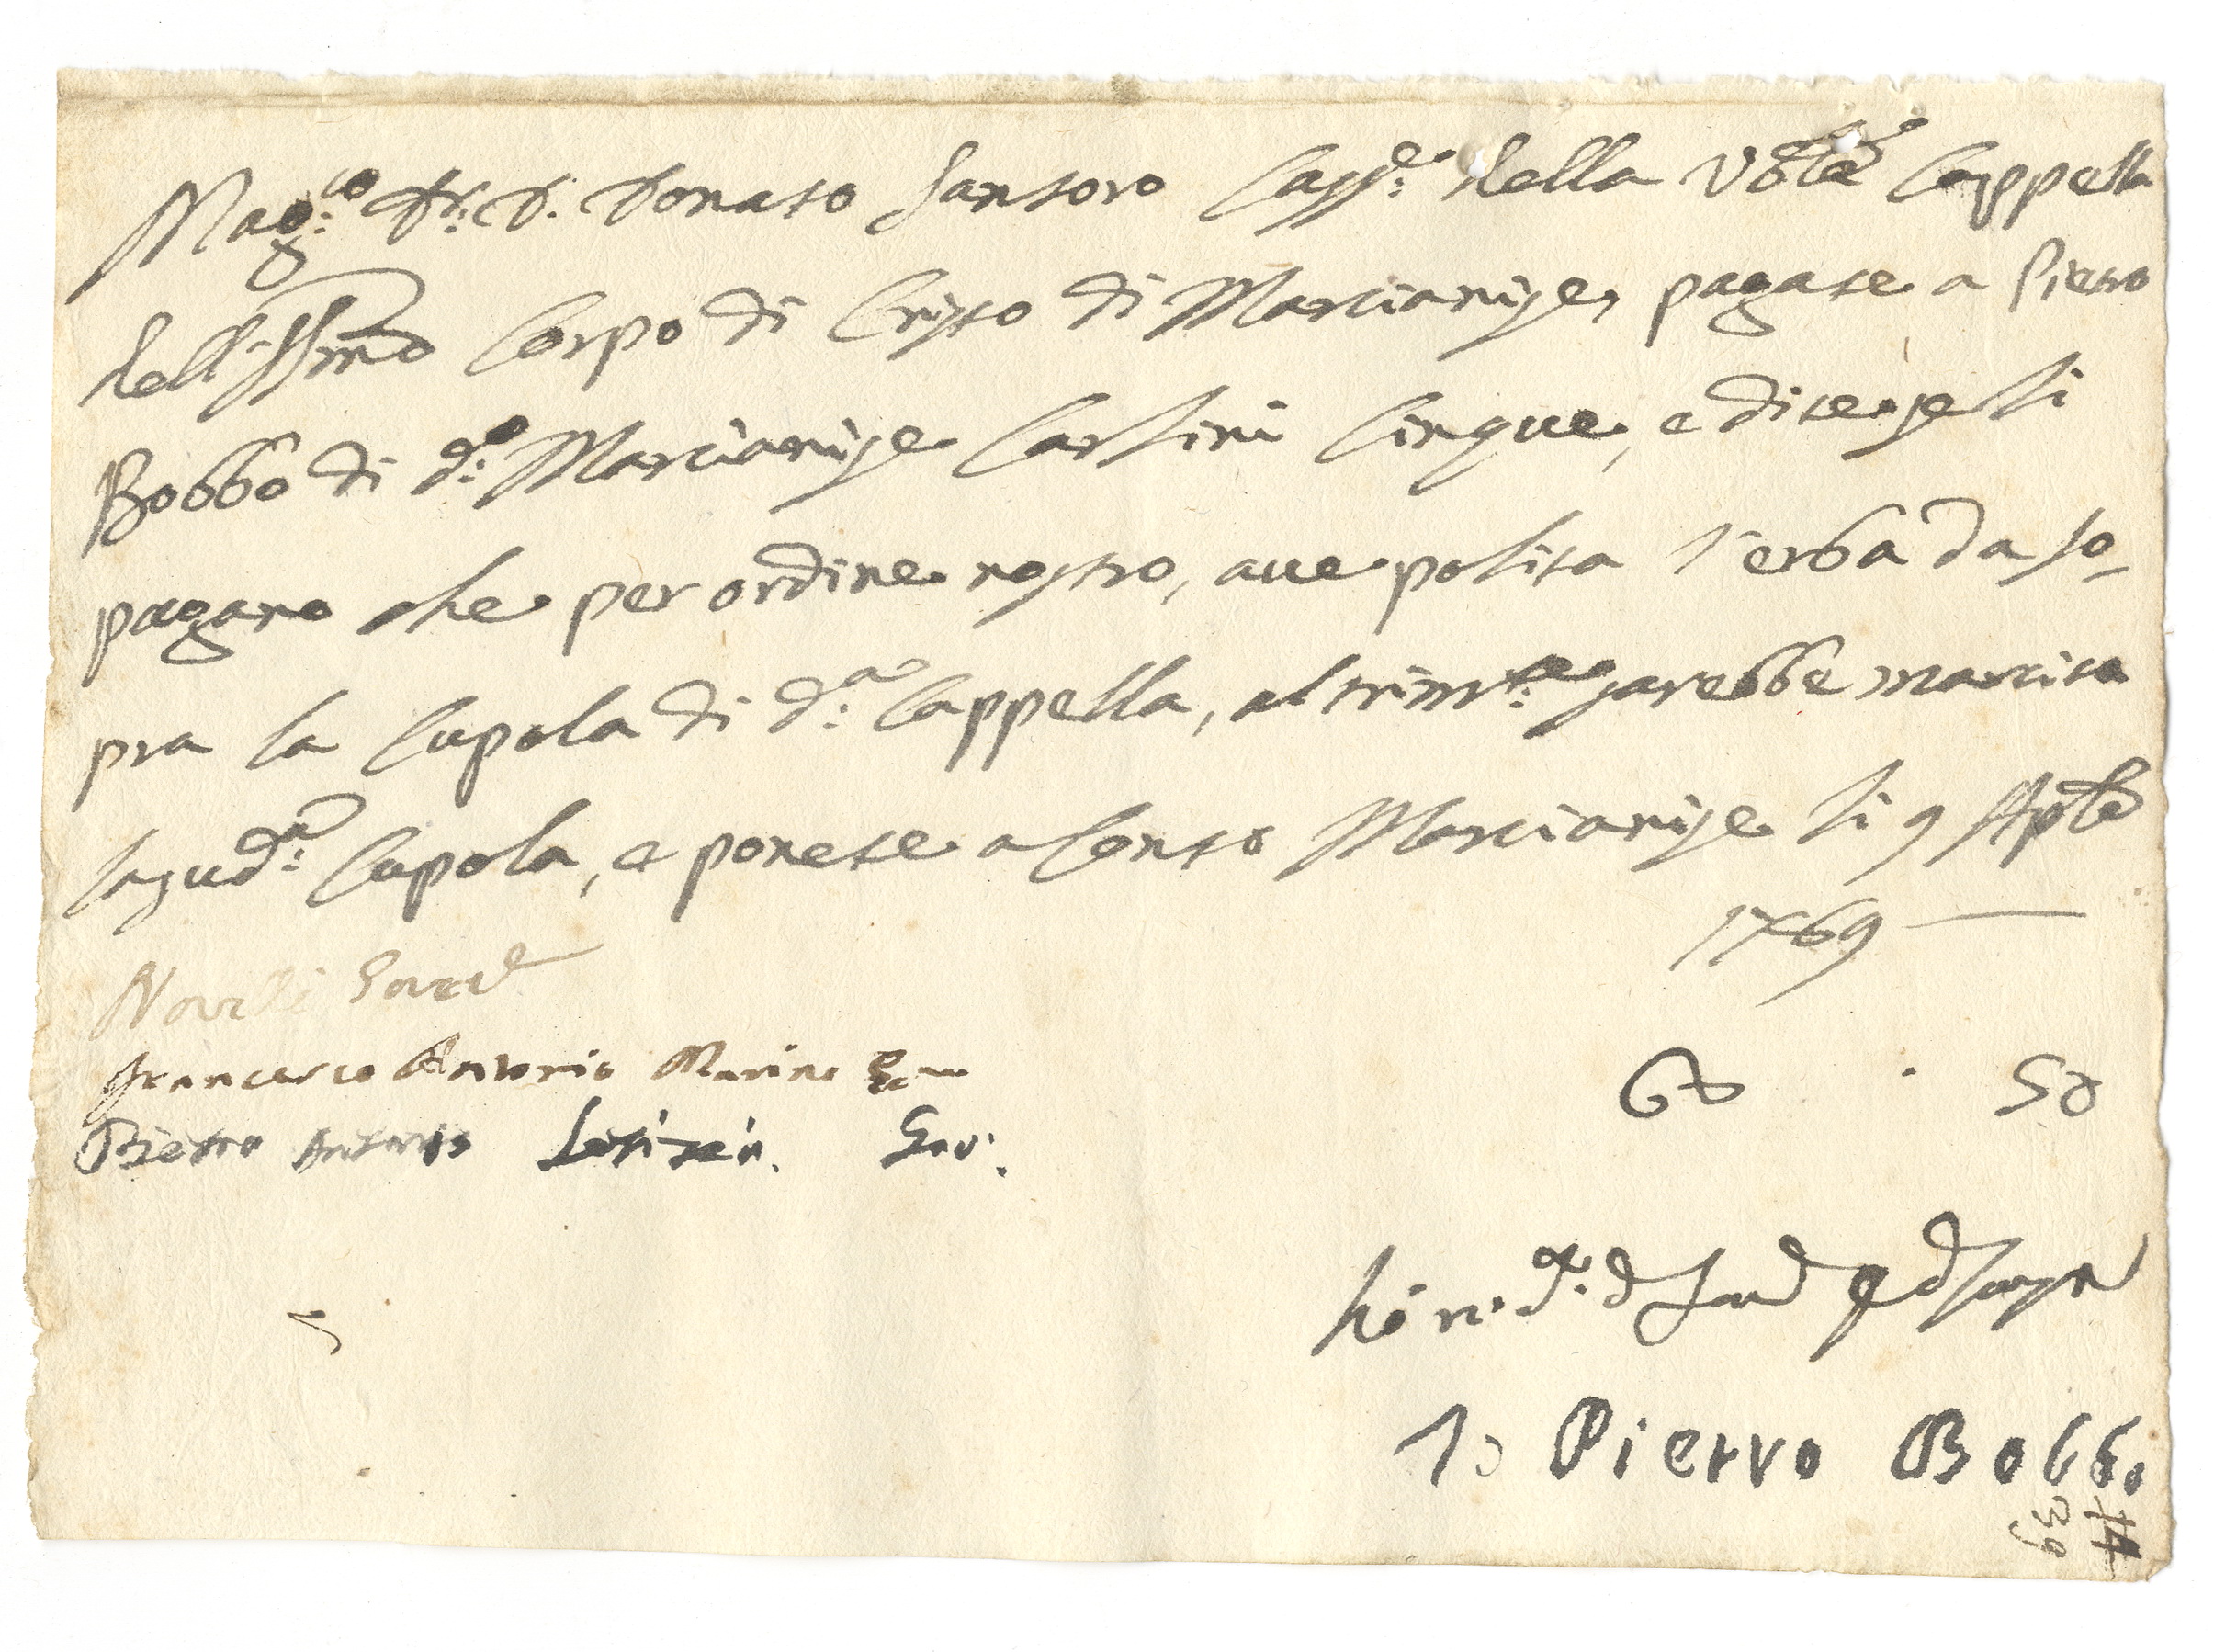 Mag.co Dr. D. Donato Santoro Cass.e della Vble Cappella
dell SSmo Corpo di Cristo di Marcianise, pagate a Pietro
Bobbo di d.o Marcianise Carlini Cinque, e dite se li
pagano che per ordine nostro, ave polita l'erba da so-
pra la Cupola di d.a Cappella, altrim.te sarebbe marcita
la sud.a Cupola, e ponete a Conto Marcianise li 9 Aple
1769
Novelli Gover
Francesco Antonio Marino Gov
Pietro Antonio Gov.
50
Io Pierro Bobbo
39